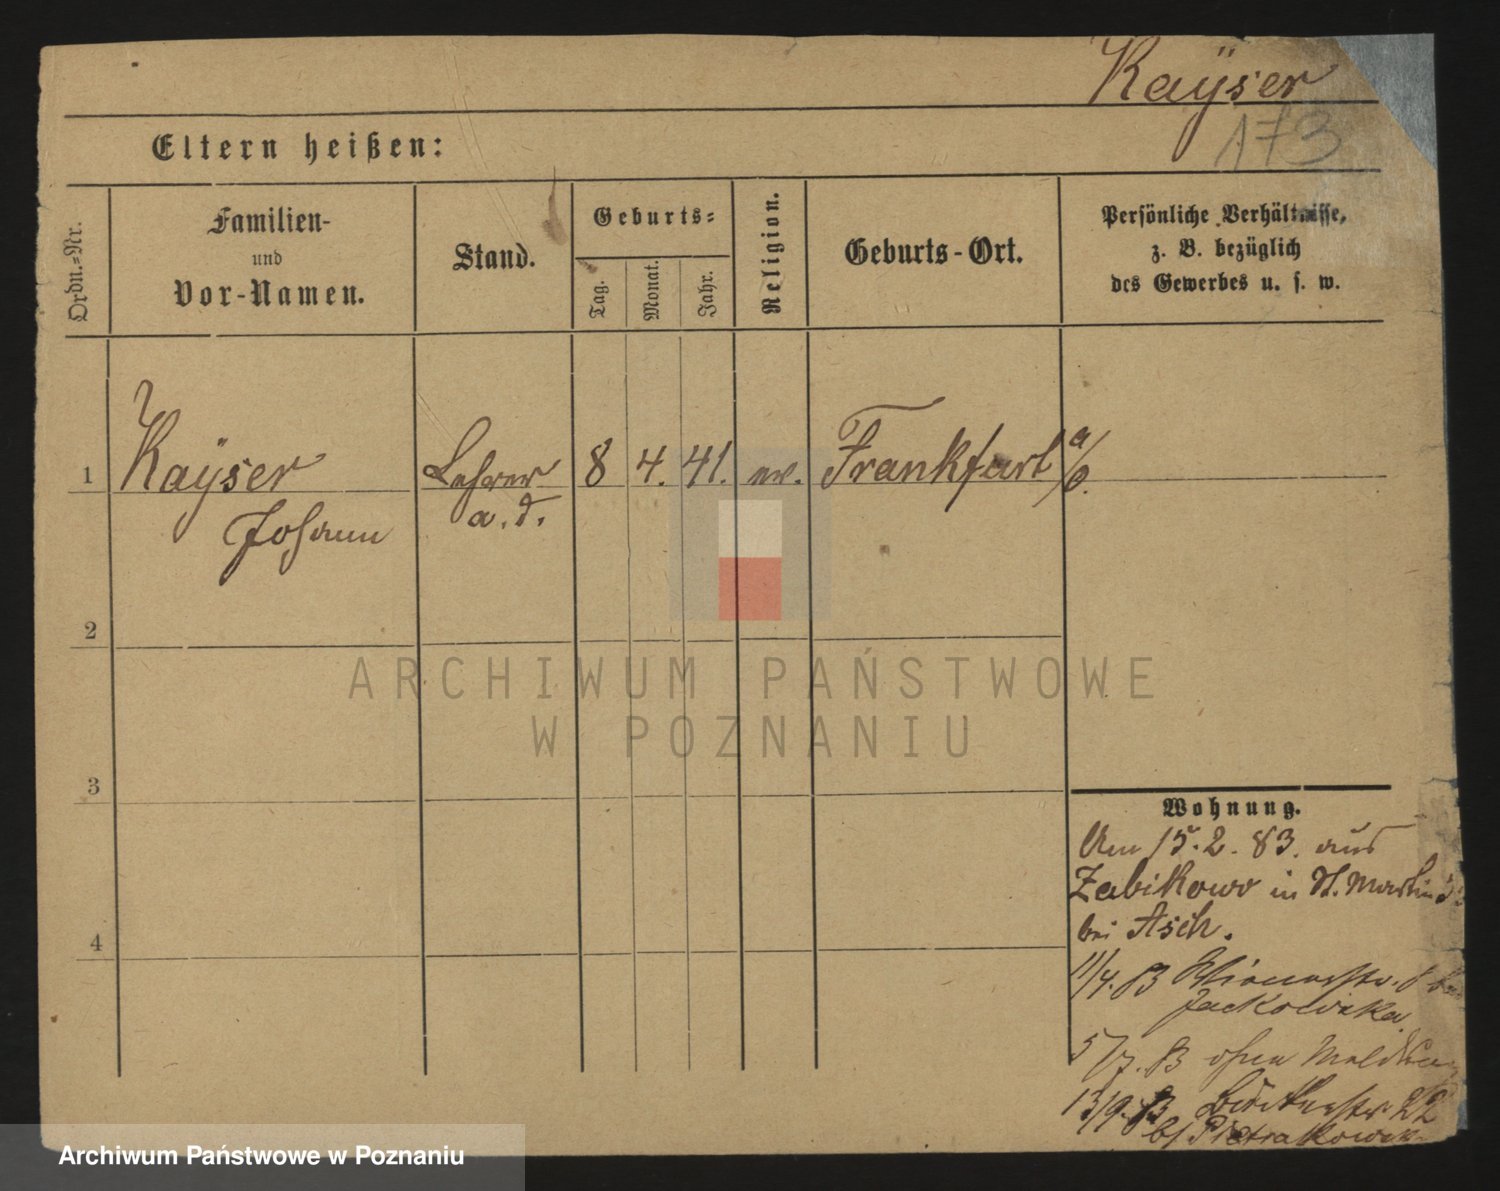 Kaÿser
173
Eltern heißen:
Ordn.=Nr.
Familien-
und
Vor-Namen.
Stand.
Geburts=
Tag.
Monat.
Jahr.
Religion.
Geburts-Ort.
Persönliche Verhältnisse,
z. B. bezüglich
des Gewerbes u. s. w.
1
Kaÿser
Johann
Lehrer
a. D.
8
4.
41.
ev.
Frankfurt a/O.
2
3
4
Wohnung.
Am 15.2.83. aus
Zabikowo in St. Martin
bei Asch.
11/4.83
Jackowska
5/7.83 ohne Meldung
13/9.83 22
b/ Pietrakowska
ARCHIWUM PAŃSTWOWE
W POZNANIU
Archiwum Państwowe w Poznaniu